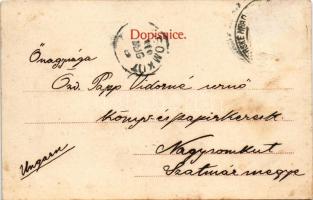 Dopisnice.
Őnagysága
Özv. Papp Vidorné urnő
könyv és papirkeresk
Nagysomkut
Szatmár megye
Ungarn